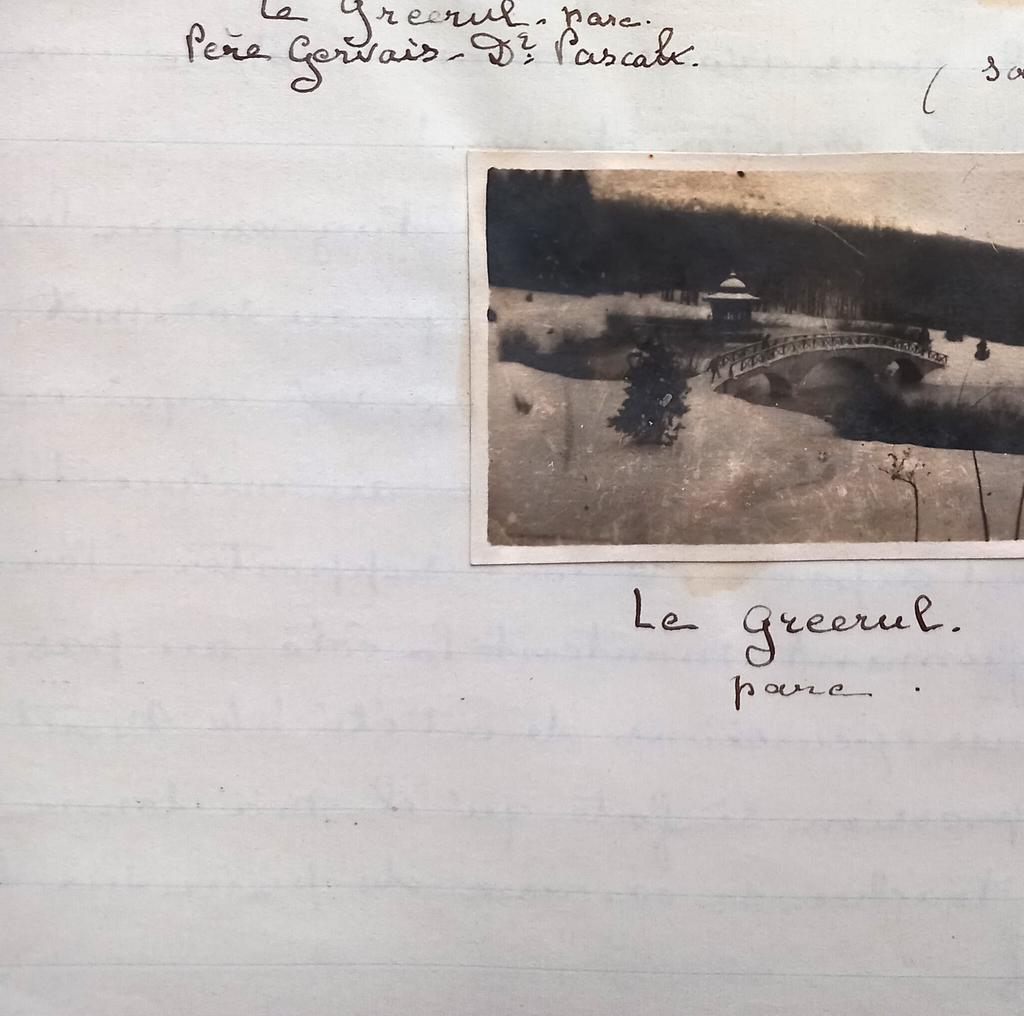 Le Greerul. parc.
Père Gervais - Dr Pascal.
Le Greerul.
parc.